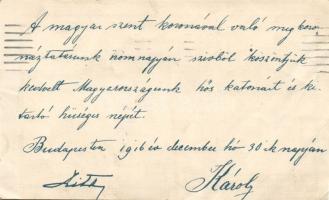 A magyar szent koronával való megkoro-
náztatásunk örömnapján szivből köszöntjük
kedvelt Magyarországunk hős katonáit és ki-
tartó hűséges népét.
Budapesten 1916 év december hó 30-ik napján
Zita Károly